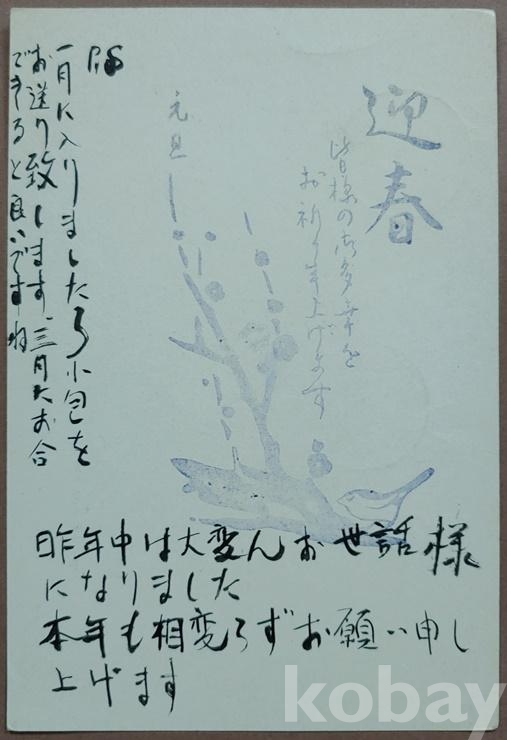 迎春
皆様の御多幸を
お祈り申上げます
元旦
P.S
一月に入りましたら小包を
お送り致します。三月にお合
できると良いですね
昨年中は大変んお世話様
になりました
本年も相変らずお願い申し
上げます
kobay